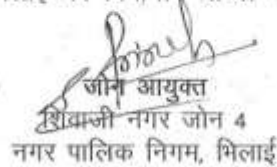 जोन आयुक्त
शिवाजी नगर जोन 4
नगर पालिक निगम, भिलाई